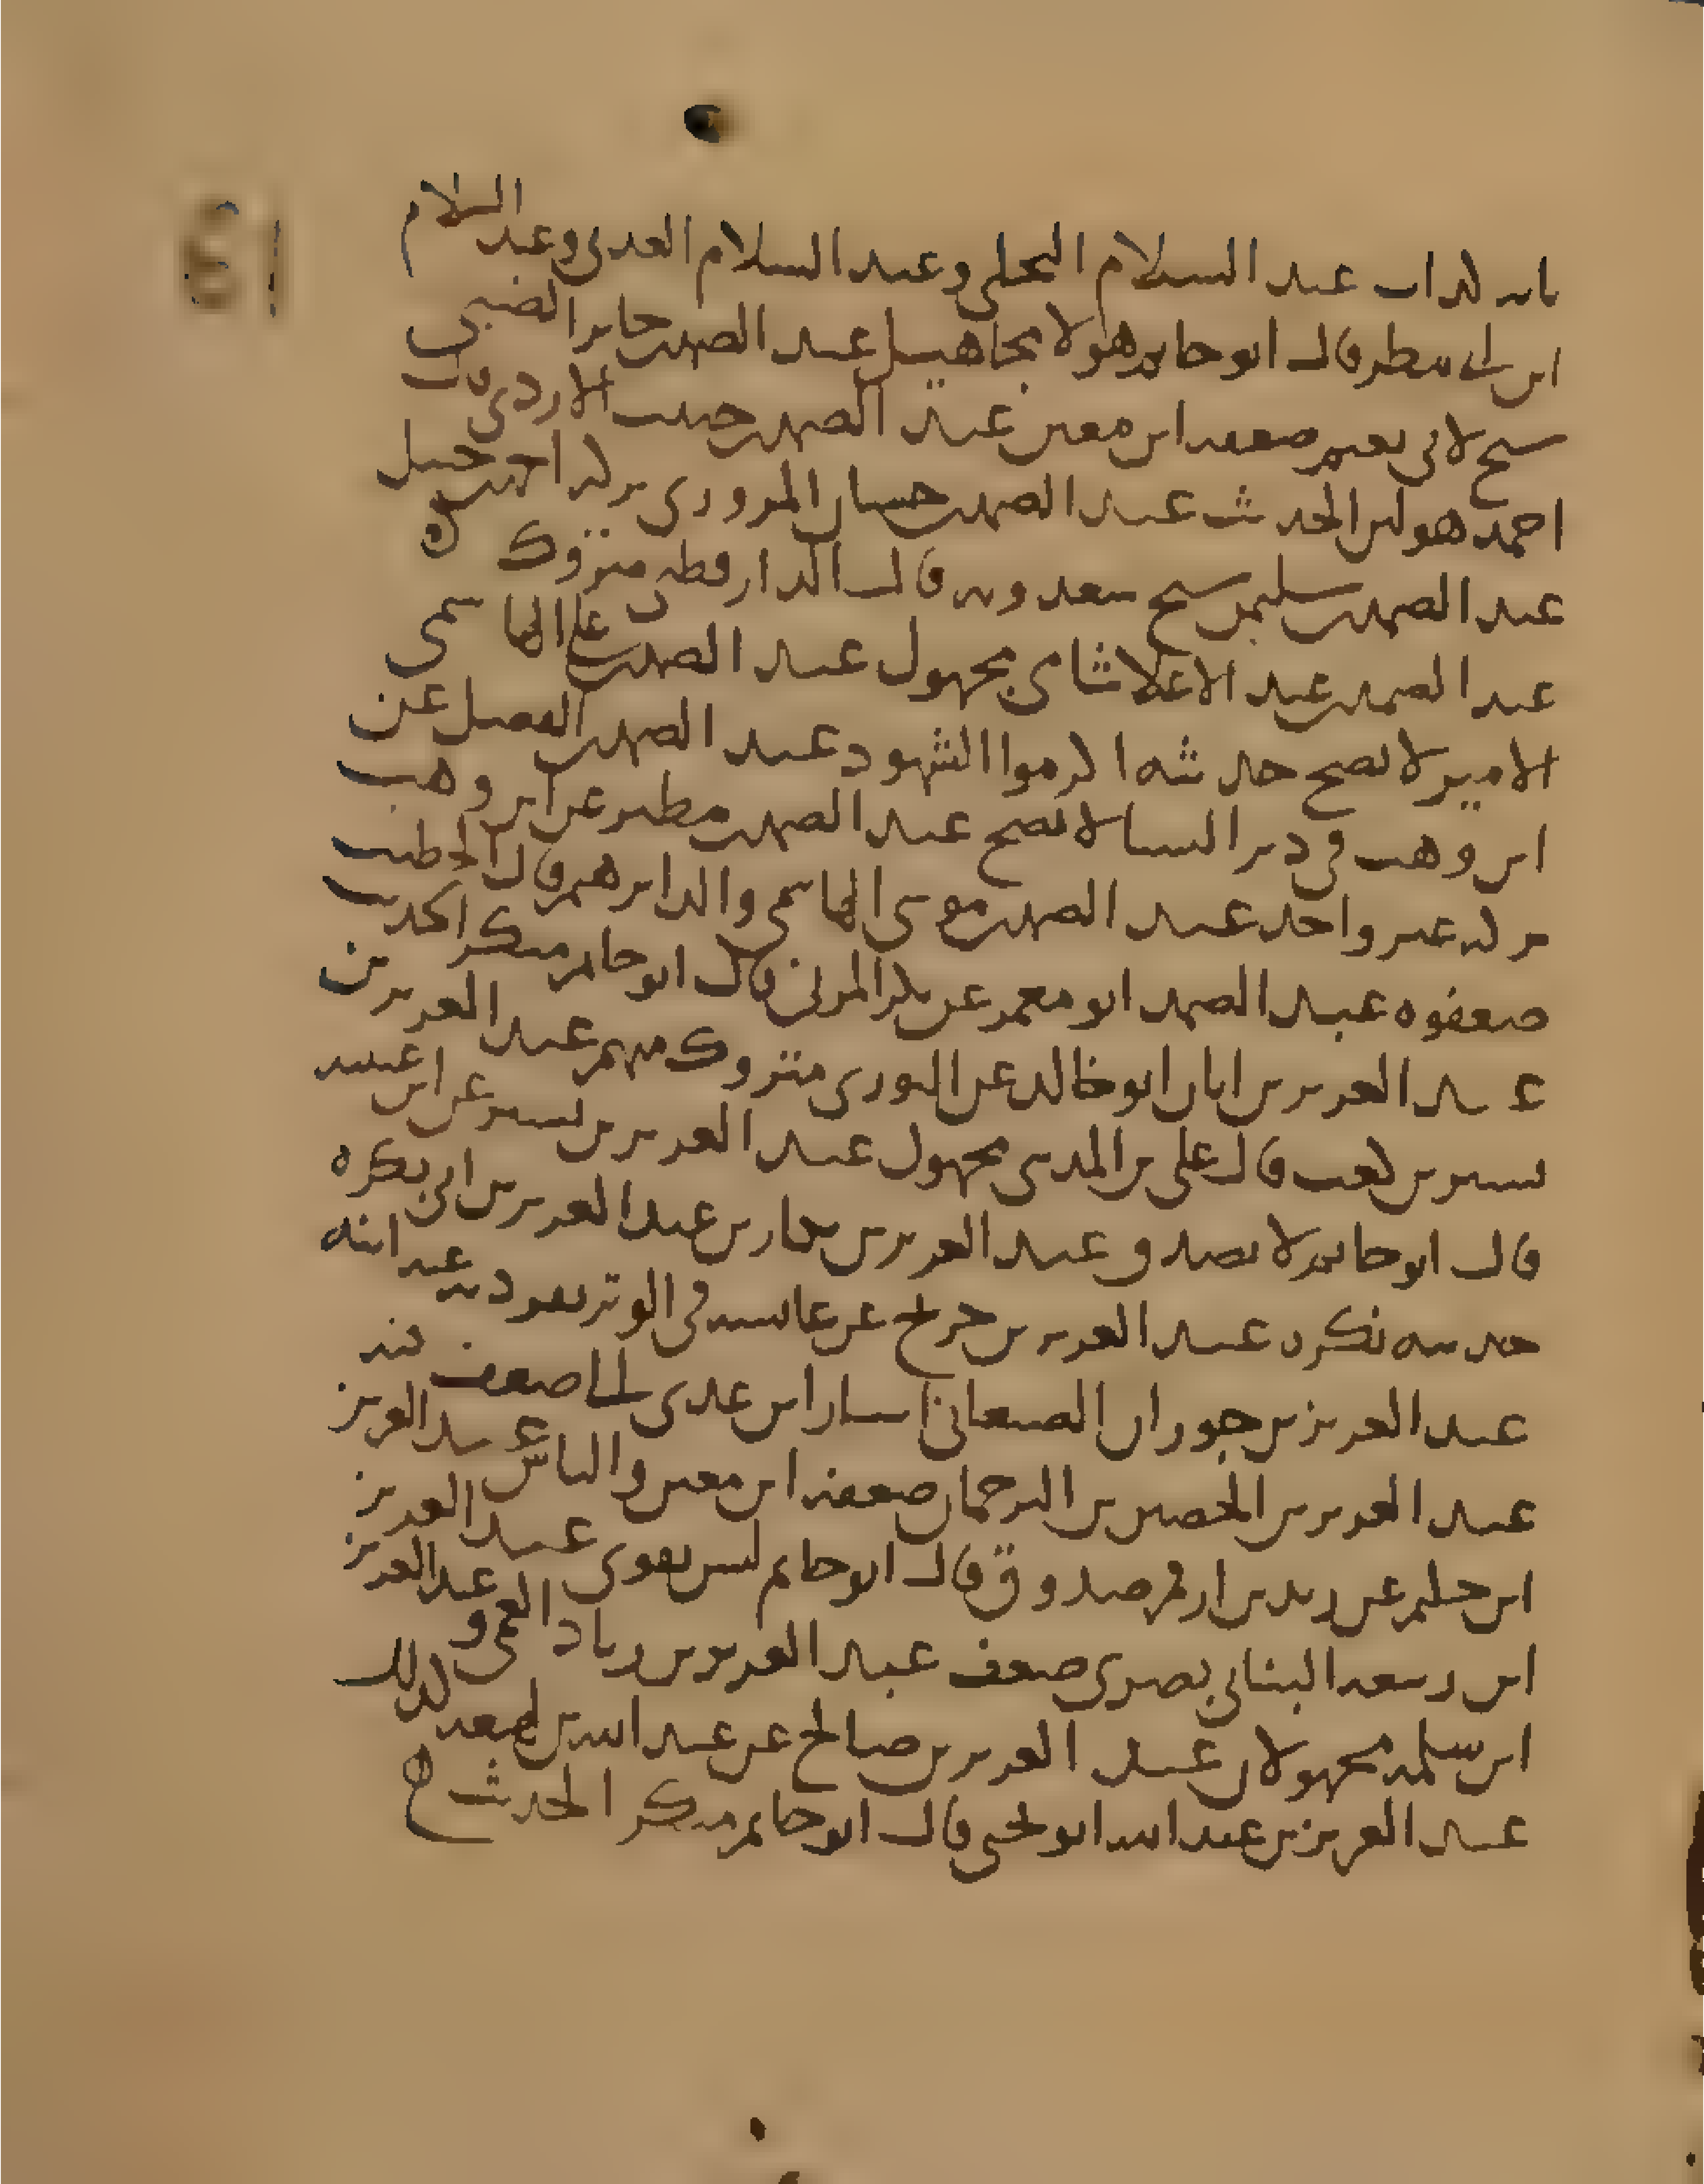 بانه كذاب عبد السلام البجلي وعبد السلام العدني وعبد السلام
ابن ابي مطر قال ابو حاتم هولا مجاهيل عبد الصمد بن جابر الضبي
شيخ لابي نعيم ضعفه ابن معين عبد الصمد بن حبيب الازدي قال
احمد هو لين الحديث عبد الصمد بن حسان المروروذي تركه احمد بن حنبل
عبد الصمد بن سليمن شيخ سعدويه قال الدارقطني متروك
عبد الصمد بن عبد الاعلا شامي مجهول عبد الصمد بن علي الهاشمي
الامير لا يصح حديثه اكرموا الشهود عبد الصمد بن الفضل عن
ابن وهب في دبر النسا لا يصح عبد الصمد بن مطير عن ابن وهب
تركه غير واحد عبد الصمد بن موسى الهاشمي والد ابرهيم قال الخطيب
ضعفوه عبد الصمد ابو معمر عن بكر المزني قال ابو حاتم منكر الحديث
عبد العزيز بن ابان ابو خالد عن الثوري متروك متهم عبد العزيز بن
بشير بن كعب قال علي بن المديني مجهول عبد العزيز بن بشير عن ابن عيينه
قال ابو حاتم لا يصدق عبد العزيز بن بكار بن عبد العزيز بن ابي بكره
حديثه نكره عبد العزيز بن جريج عن عائشه في الوتر تفرد به عنه ابنه
عبد العزيز بن جوران الصنعاني اشار ابن عدي الى ضعف فيه
عبد العزيز بن الحصين بن الترجمان ضعفه ابن معين والناس عبد العزيز
ابن حكيم عن زيد بن ارقم صدوق قال ابو حاتم ليس بقوي عبد العزيز
ابن ربيعه البناني بصري ضعف عبد العزيز بن زياد العمي وعبد العزيز
ابن سلمه مجهولان عبد العزيز بن صالح عن عبد الله بن لهيعه كذلك
عبد العزيز بن عبد الله ابو يحيى قال ابو حاتم منكر الحديث